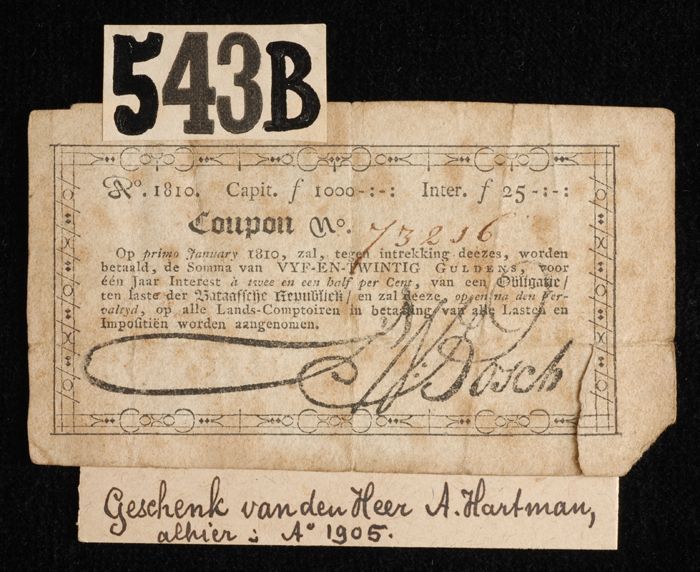 543B
Aº. 1810. Capit. f 1000-:-: Inter. f 25-:-:
Coupon Nº. 73216
Op primo January 1810, zal, tegen intrekking deezes, worden
betaald, de Somma van VYF-EN-TWINTIG GULDENS, voor
één Jaar Interest à twee en een half per Cent, van een Obligatie/
ten laste der Bataafsche Republich/ en zal deeze, op en na den Ver-
valtyd, op alle Lands-Comptoiren in betaaling van alle Lasten en
Impositiën worden aangenomen.
W: Bosch
Geschenk van den Heer A. Hartman,
alhier : Aº 1905.